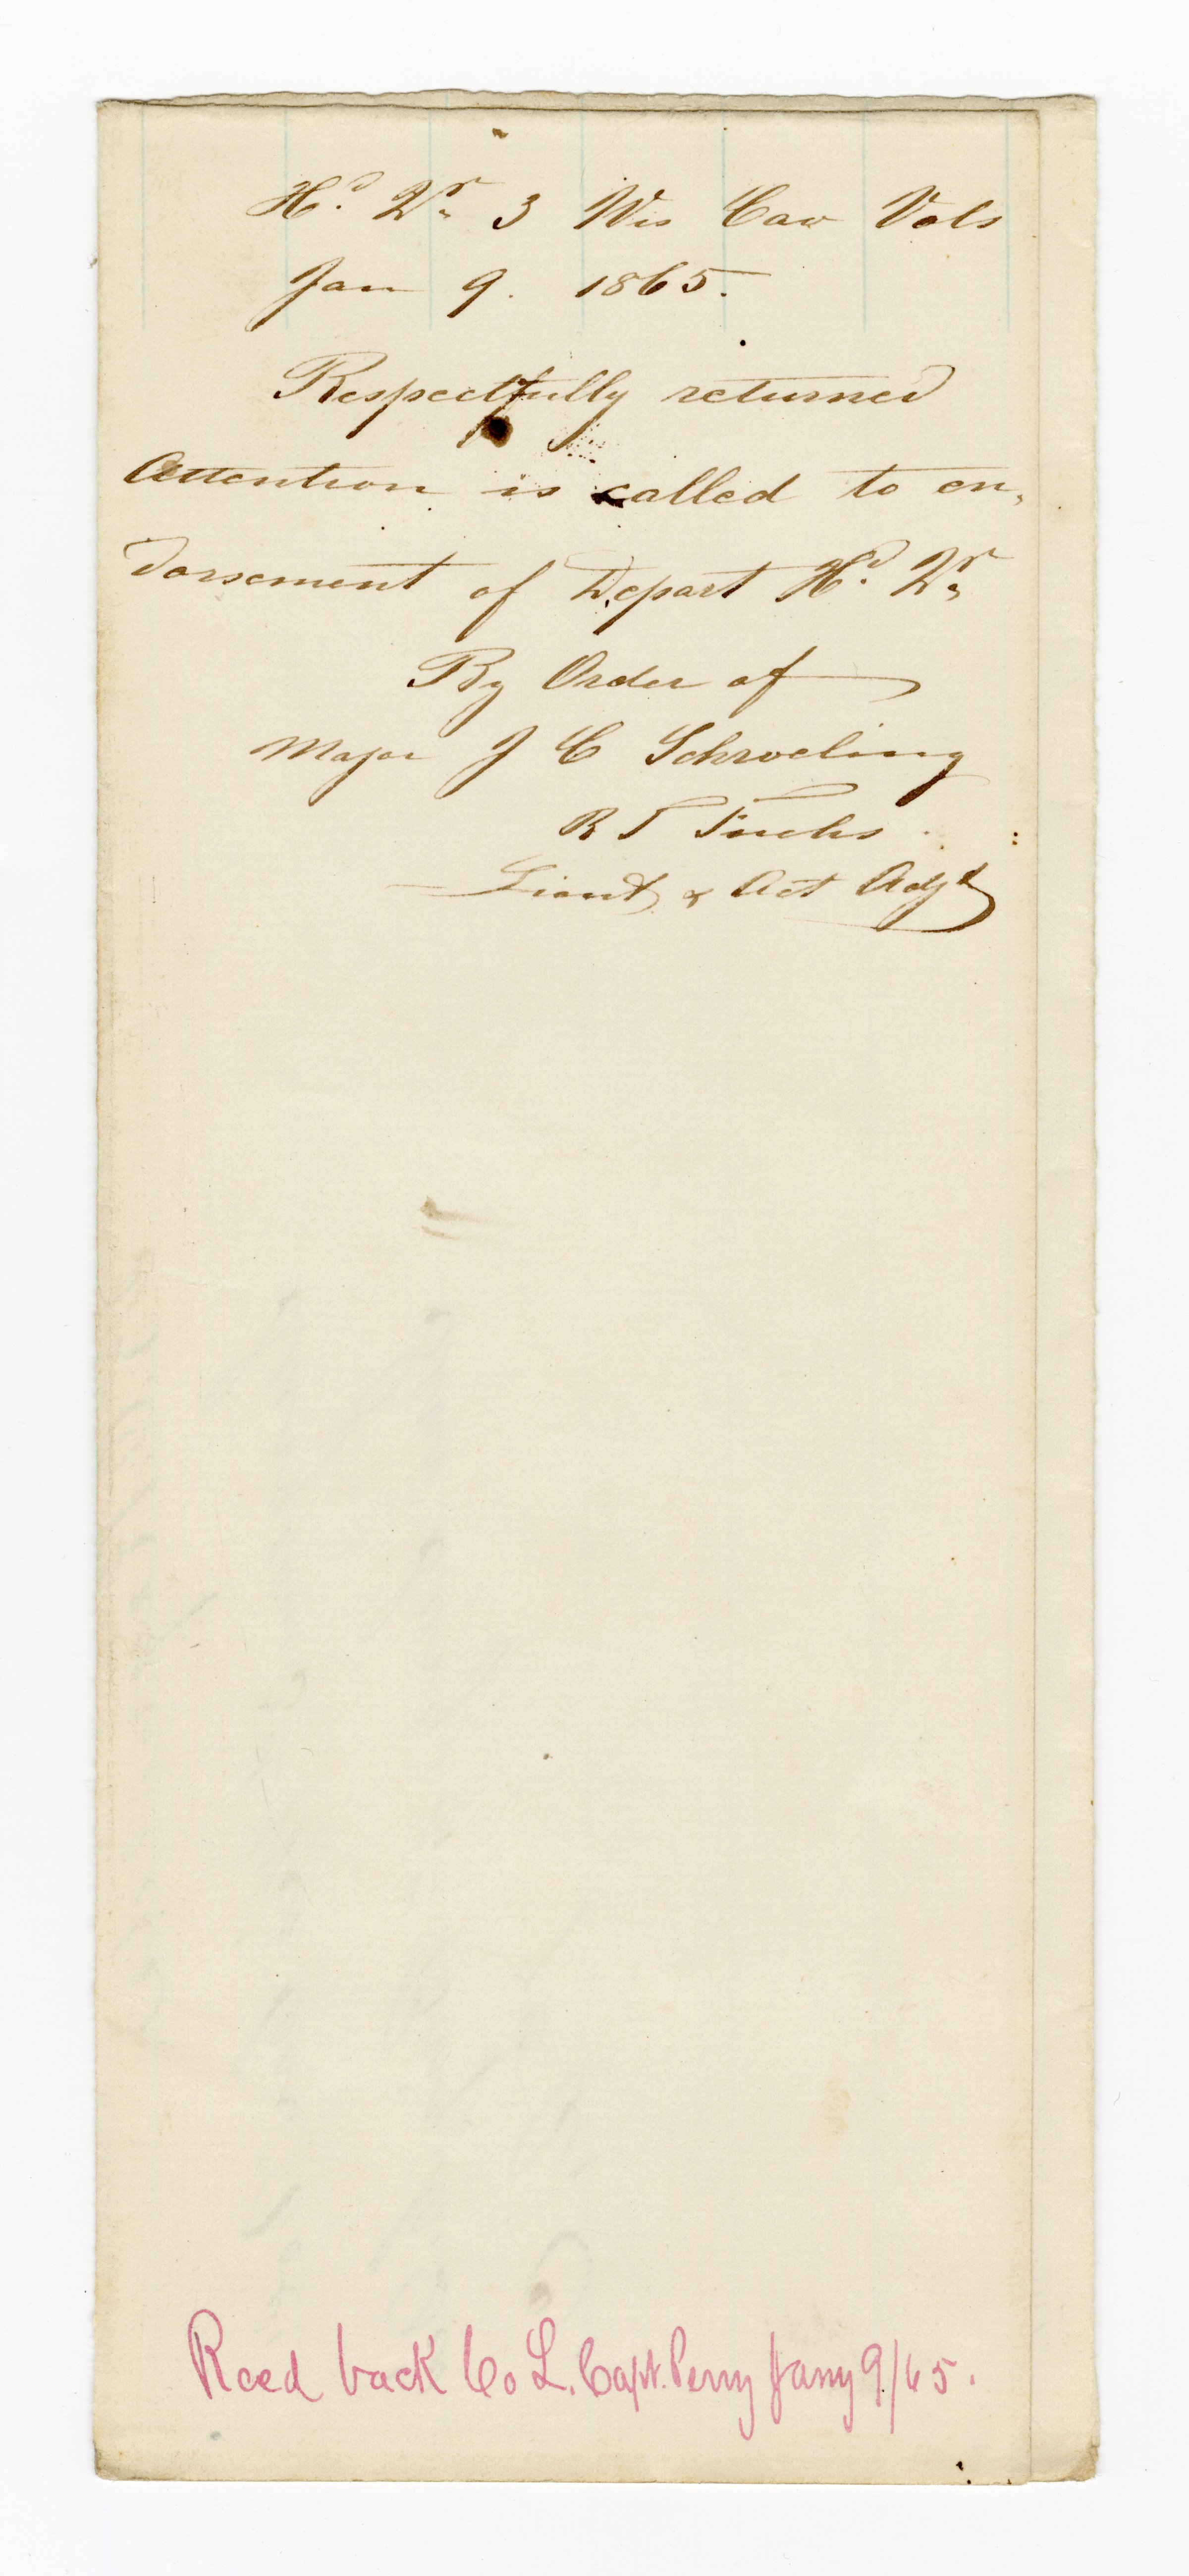 Hd Qrs 3 Wis Cav Vols
Jan 9. 1865.
Respectfully returned
Attention is called to en,
dorsement of Depart Hd Qrs
By Order of
Major J C Schroeling
B T Fuchs
Lieut & Act Adjt
Recd back Co L. Capt. Perry Jany 9/65.